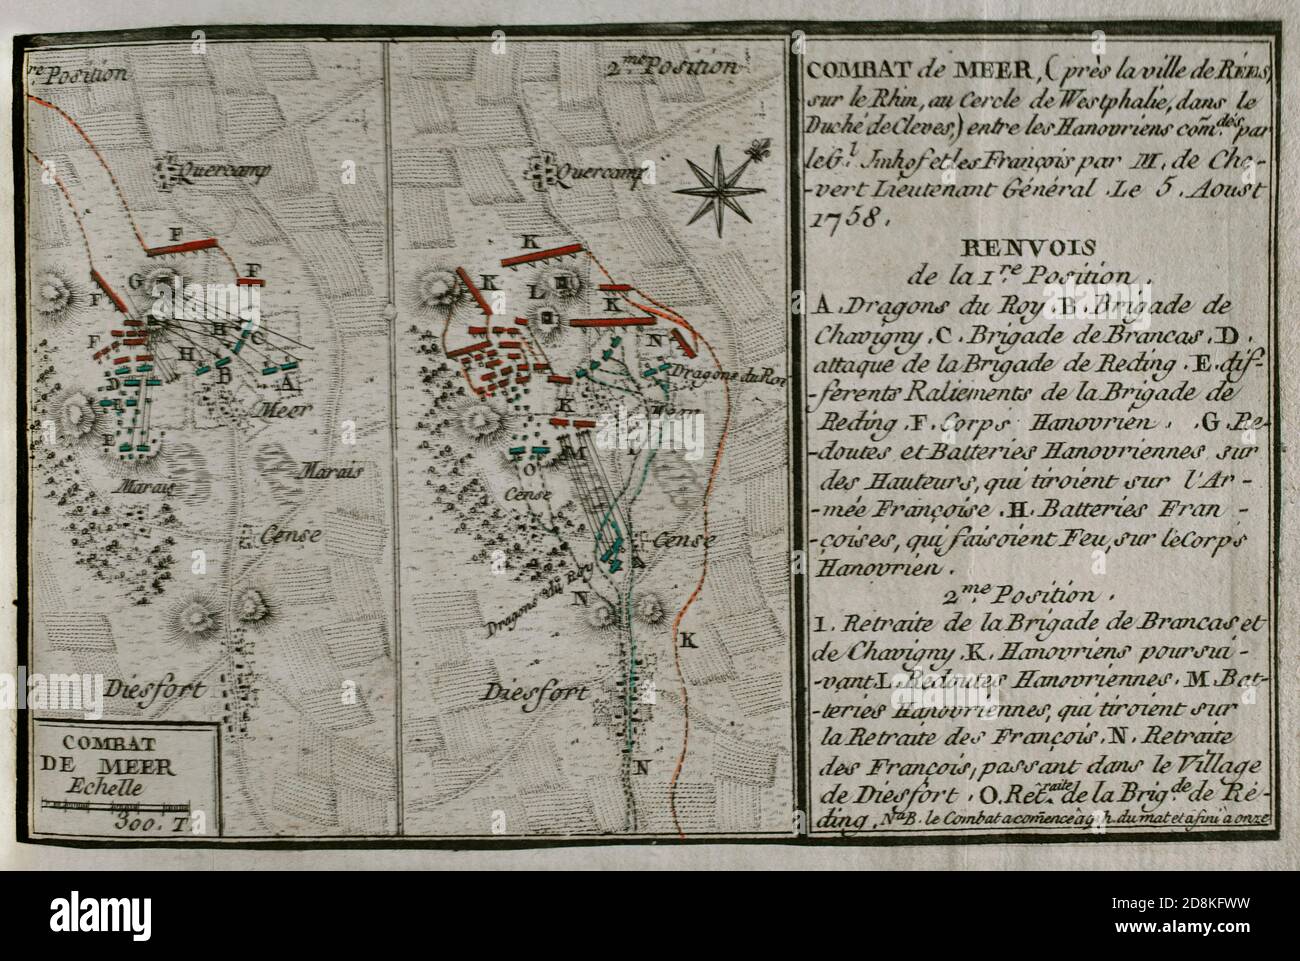 re Position
Quercamp
F
F
G
F
H
C
F
H
B
A
D
Meer
E
Marais
Marais
Cense
Diesfort
COMBAT
DE MEER
Echelle
300. T.
2.me Position
Quercamp
K
K
L
K
N
Dragons du Roy
K
Meer
M
O
Cense
Cense
Dragons du Roy
N
K
Diesfort
N
COMBAT de MEER, (près la ville de REES,
sur le Rhin, au Cercle de Westphalie, dans le
Duché de Cleves,) entre les Hanovriens com.dés par
le G.l Imhof et les François par M. de Che-
-vert Lieutenant Général. Le 5. Aoust
1758.
RENVOIS
de la 1.re Position.
A. Dragons du Roy. B. Brigade de
Chavigny. C. Brigade de Brancas. D.
attaque de la Brigade de Reding. E. dif-
-férents Raliements de la Brigade de
Reding. F. Corps Hanovrien. G. Re-
-doutes et Batteries Hanovriennes sur
des Hauteurs, qui tiroient sur l'Ar-
-mée Françoise. H. Batteries Fran-
-çoises, qui faisoient Feu, sur le Corps
Hanovrien.
2.me Position.
I. Retraite de la Brigade de Brancas et
de Chavigny. K. Hanovriens poursui-
-vant. L. Redoutes Hanovriennes. M. Bat-
-teries Hanovriennes, qui tiroient sur
la Retraite des François. N. Retraite
des François, passant dans le Village
de Diesfort. O. Ret.raite de la Brig.de de Ré-
-ding. N.a B. le Combat a comencé a 9 h. du mat et a fini à onze
alamy
Image ID: 2D8KFWW
www.alamy.com